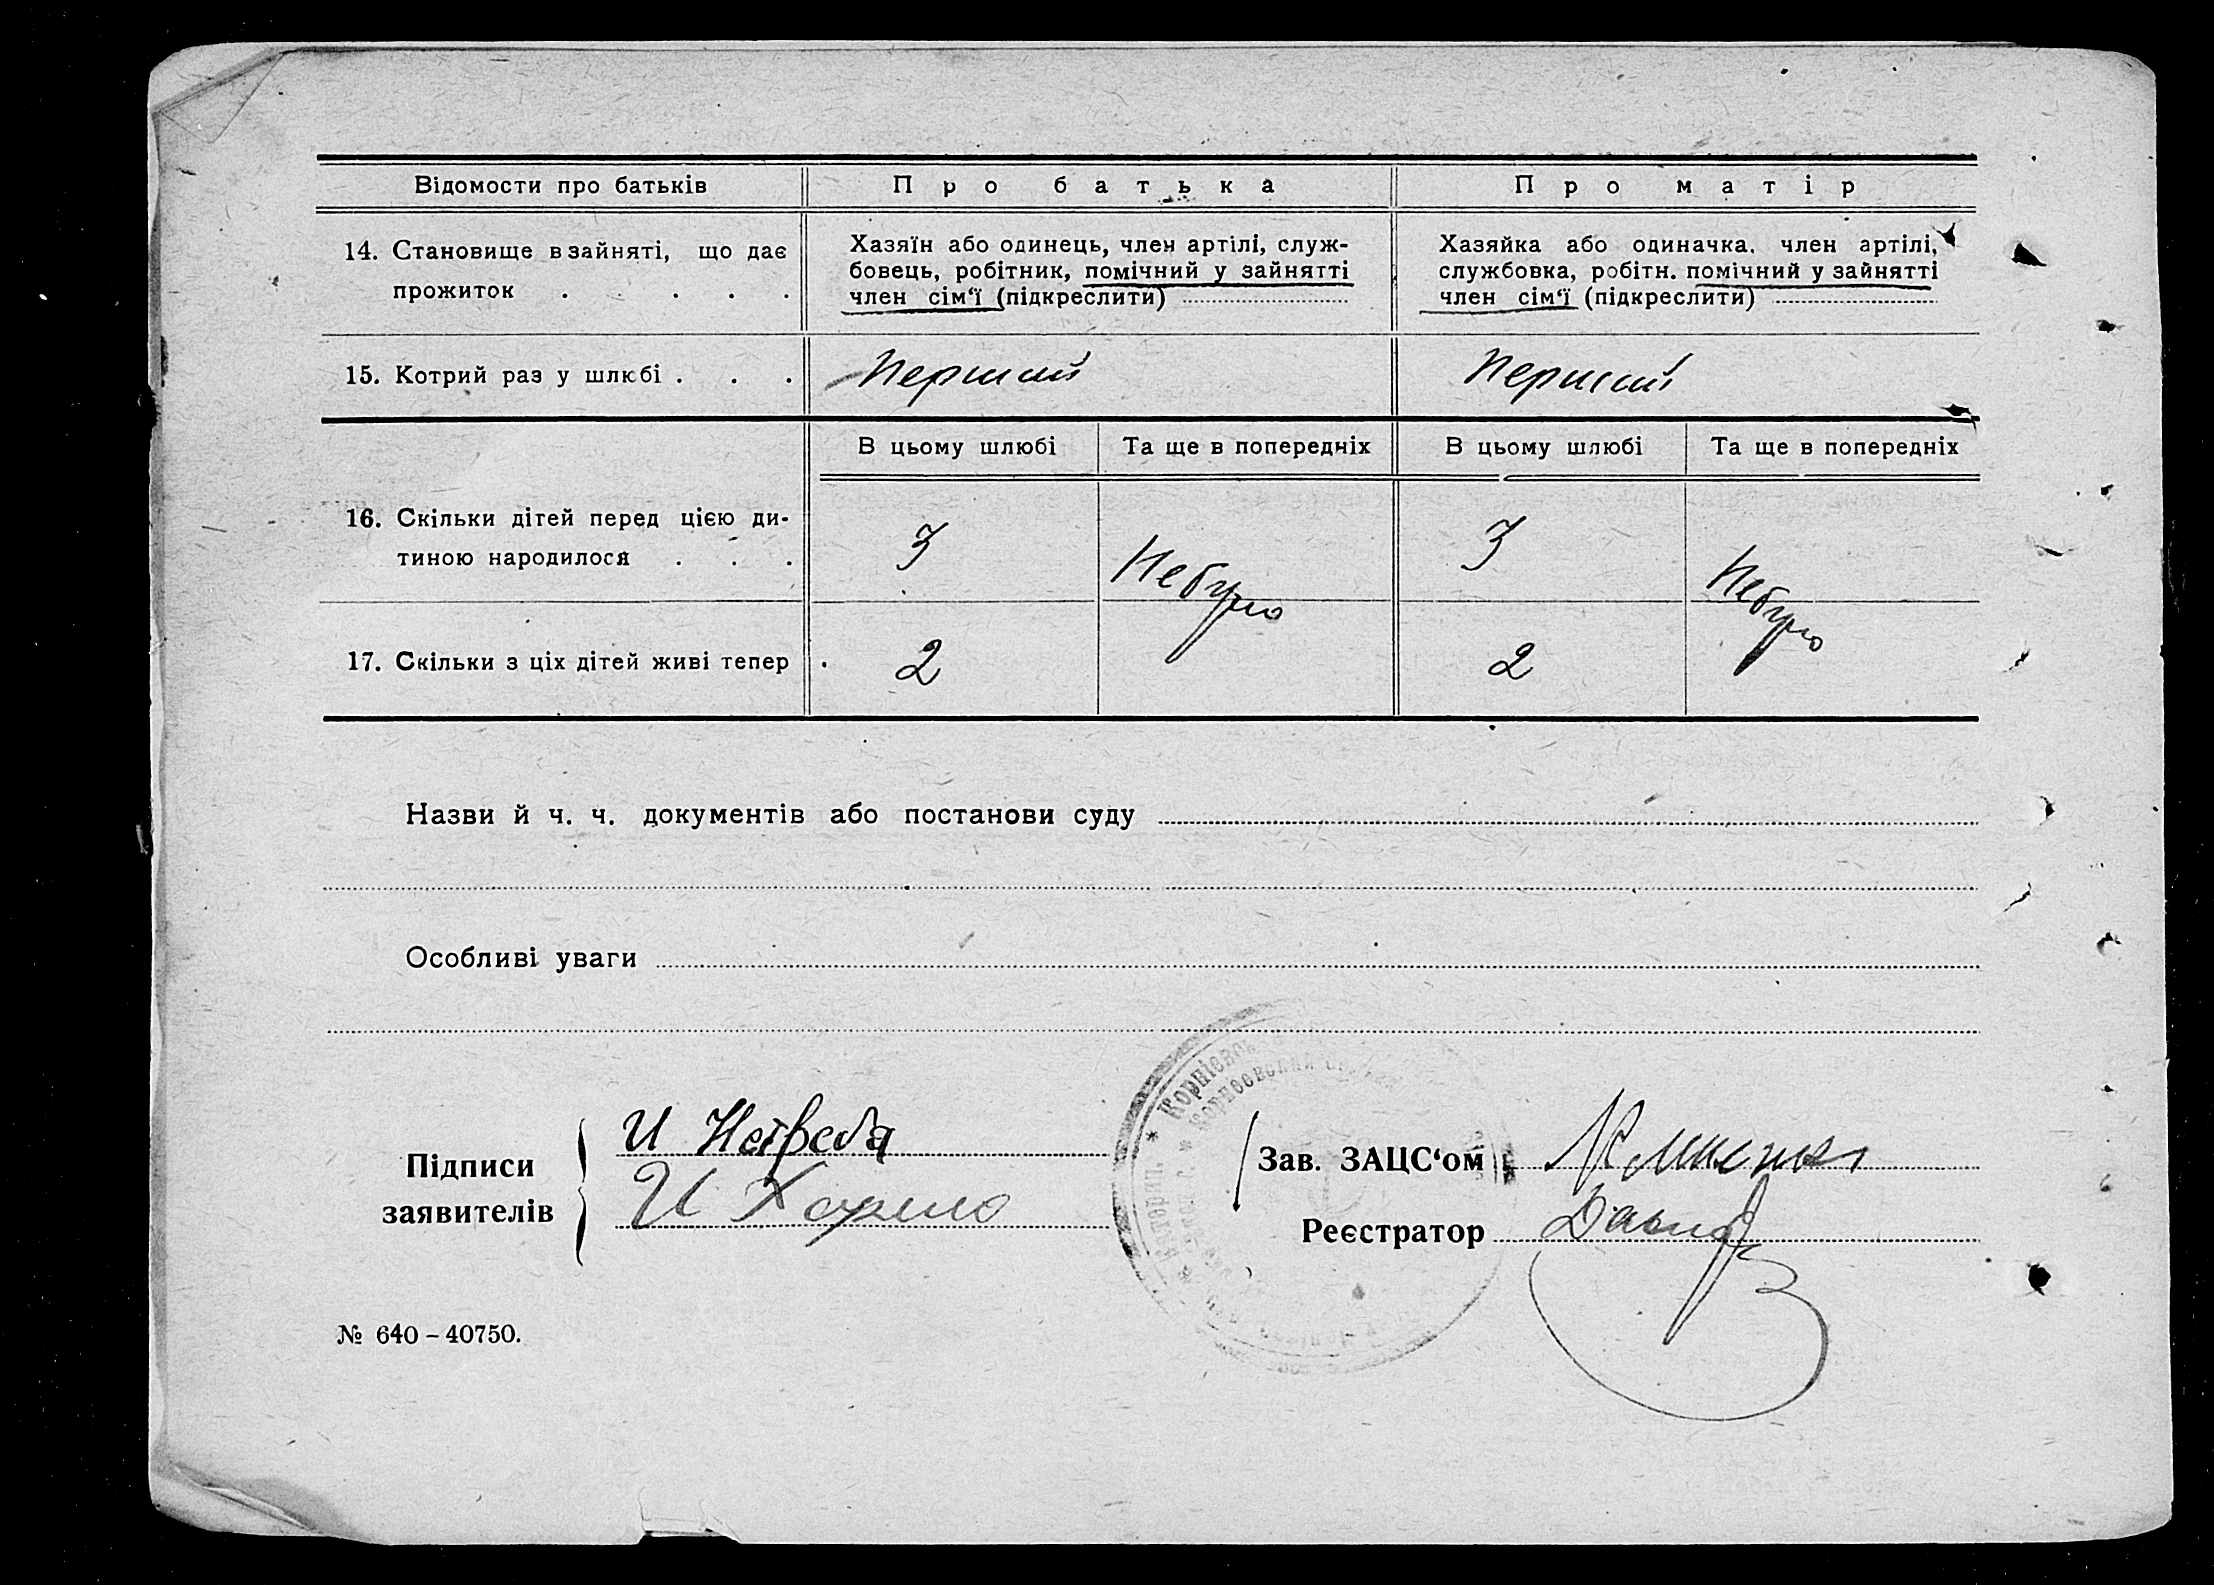 Відомости про батьків Про батька Про матір
14. Становище в зайняті, що дає
прожиток . . . . .
Хазяїн або одинець, член артілі, служ-
бовець, робітник, помічний у зайнятті
член сім‘ї (підкреслити)
Хазяйка або одиначка. член артілі,
службовка, робітн. помічний у зайнятті
член сім‘ї (підкреслити)
15. Котрий раз у шлюбі . . . Перший Перший
В цьому шлюбі Та ще в попередніх В цьому шлюбі Та ще в попередніх
16. Скільки дітей перед цією ди-
тиною народилося . . .
3 Небуло 3 Небуло
17. Скільки з ціх дітей живі тепер 2 2
Назви й ч. ч. документів або постанови суду
Особливі уваги
Підписи
заявителів
И Нетреба
И
Зав. ЗАЦС‘ом
Реєстратор
№ 640-40750.